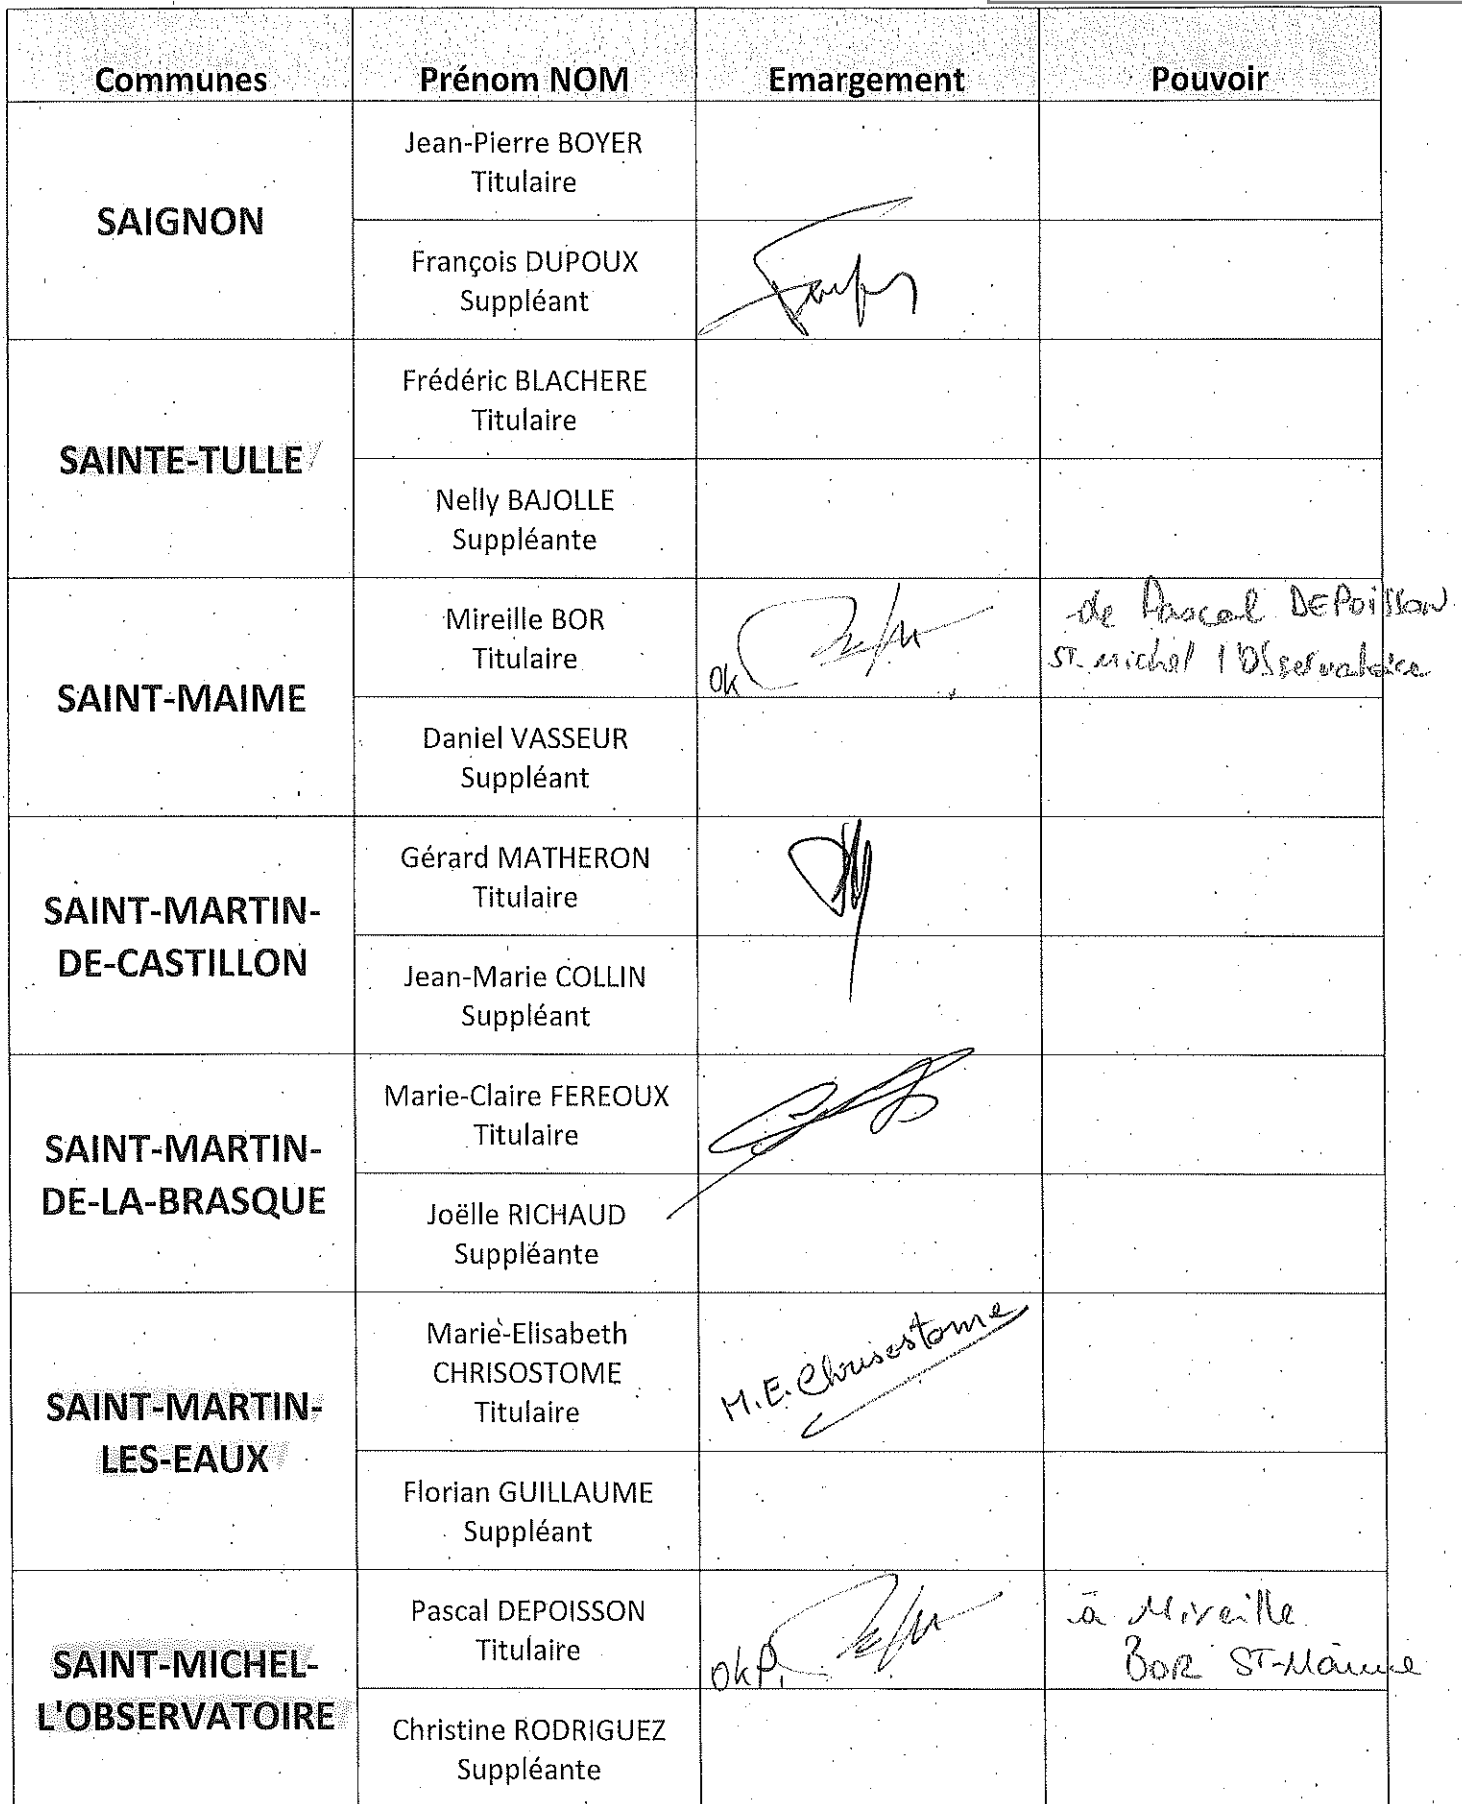 Communes Prénom NOM Emargement Pouvoir
SAIGNON
Jean-Pierre BOYER
Titulaire
François DUPOUX
Suppléant
SAINTE-TULLE
Frédéric BLACHERE
Titulaire
Nelly BAJOLLE
Suppléante
SAINT-MAIME
Mireille BOR
Titulaire
ok
de Pascal DEPoisson
ST. michel l'Observatoire
Daniel VASSEUR
Suppléant
SAINT-MARTIN-
DE-CASTILLON
Gérard MATHERON
Titulaire
Jean-Marie COLLIN
Suppléant
SAINT-MARTIN-
DE-LA-BRASQUE
Marie-Claire FEREOUX
Titulaire
Joëlle RICHAUD
Suppléante
SAINT-MARTIN-
LES-EAUX
Marie-Elisabeth
CHRISOSTOME
Titulaire
M.E. Chrisostome
Florian GUILLAUME
Suppléant
SAINT-MICHEL-
L'OBSERVATOIRE
Pascal DEPOISSON
Titulaire
okP.
à Mireille
BOR ST-Maime
Christine RODRIGUEZ
Suppléante